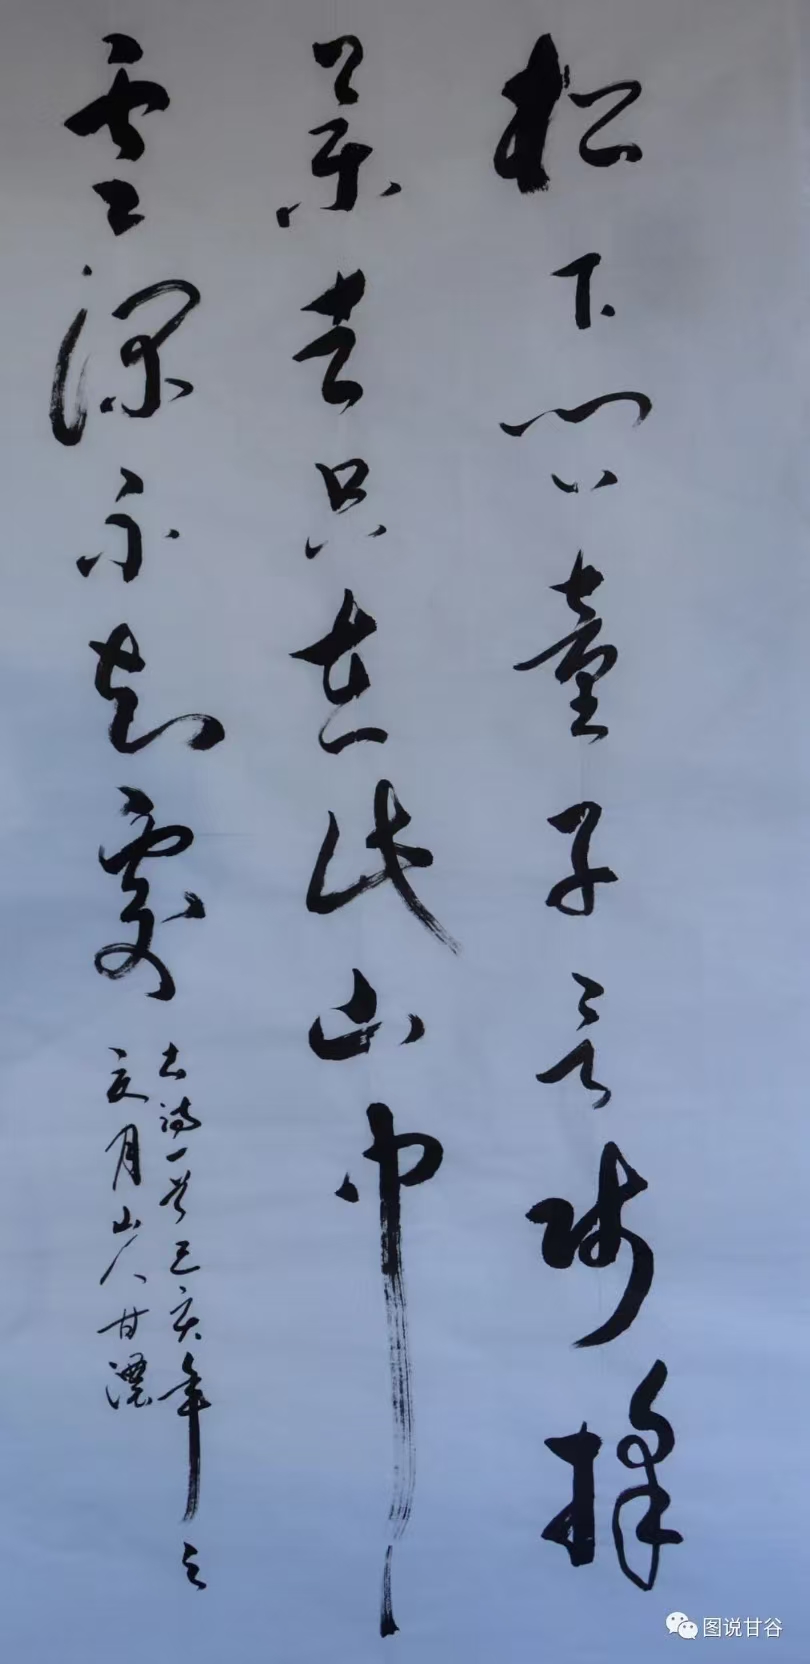 松下问童子言师採
药去只在此山中
云深不知处
古诗一首己亥年之
夏月山人甘浓
图说甘谷